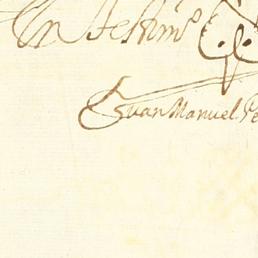 En testimº
Juan Manuel Pe